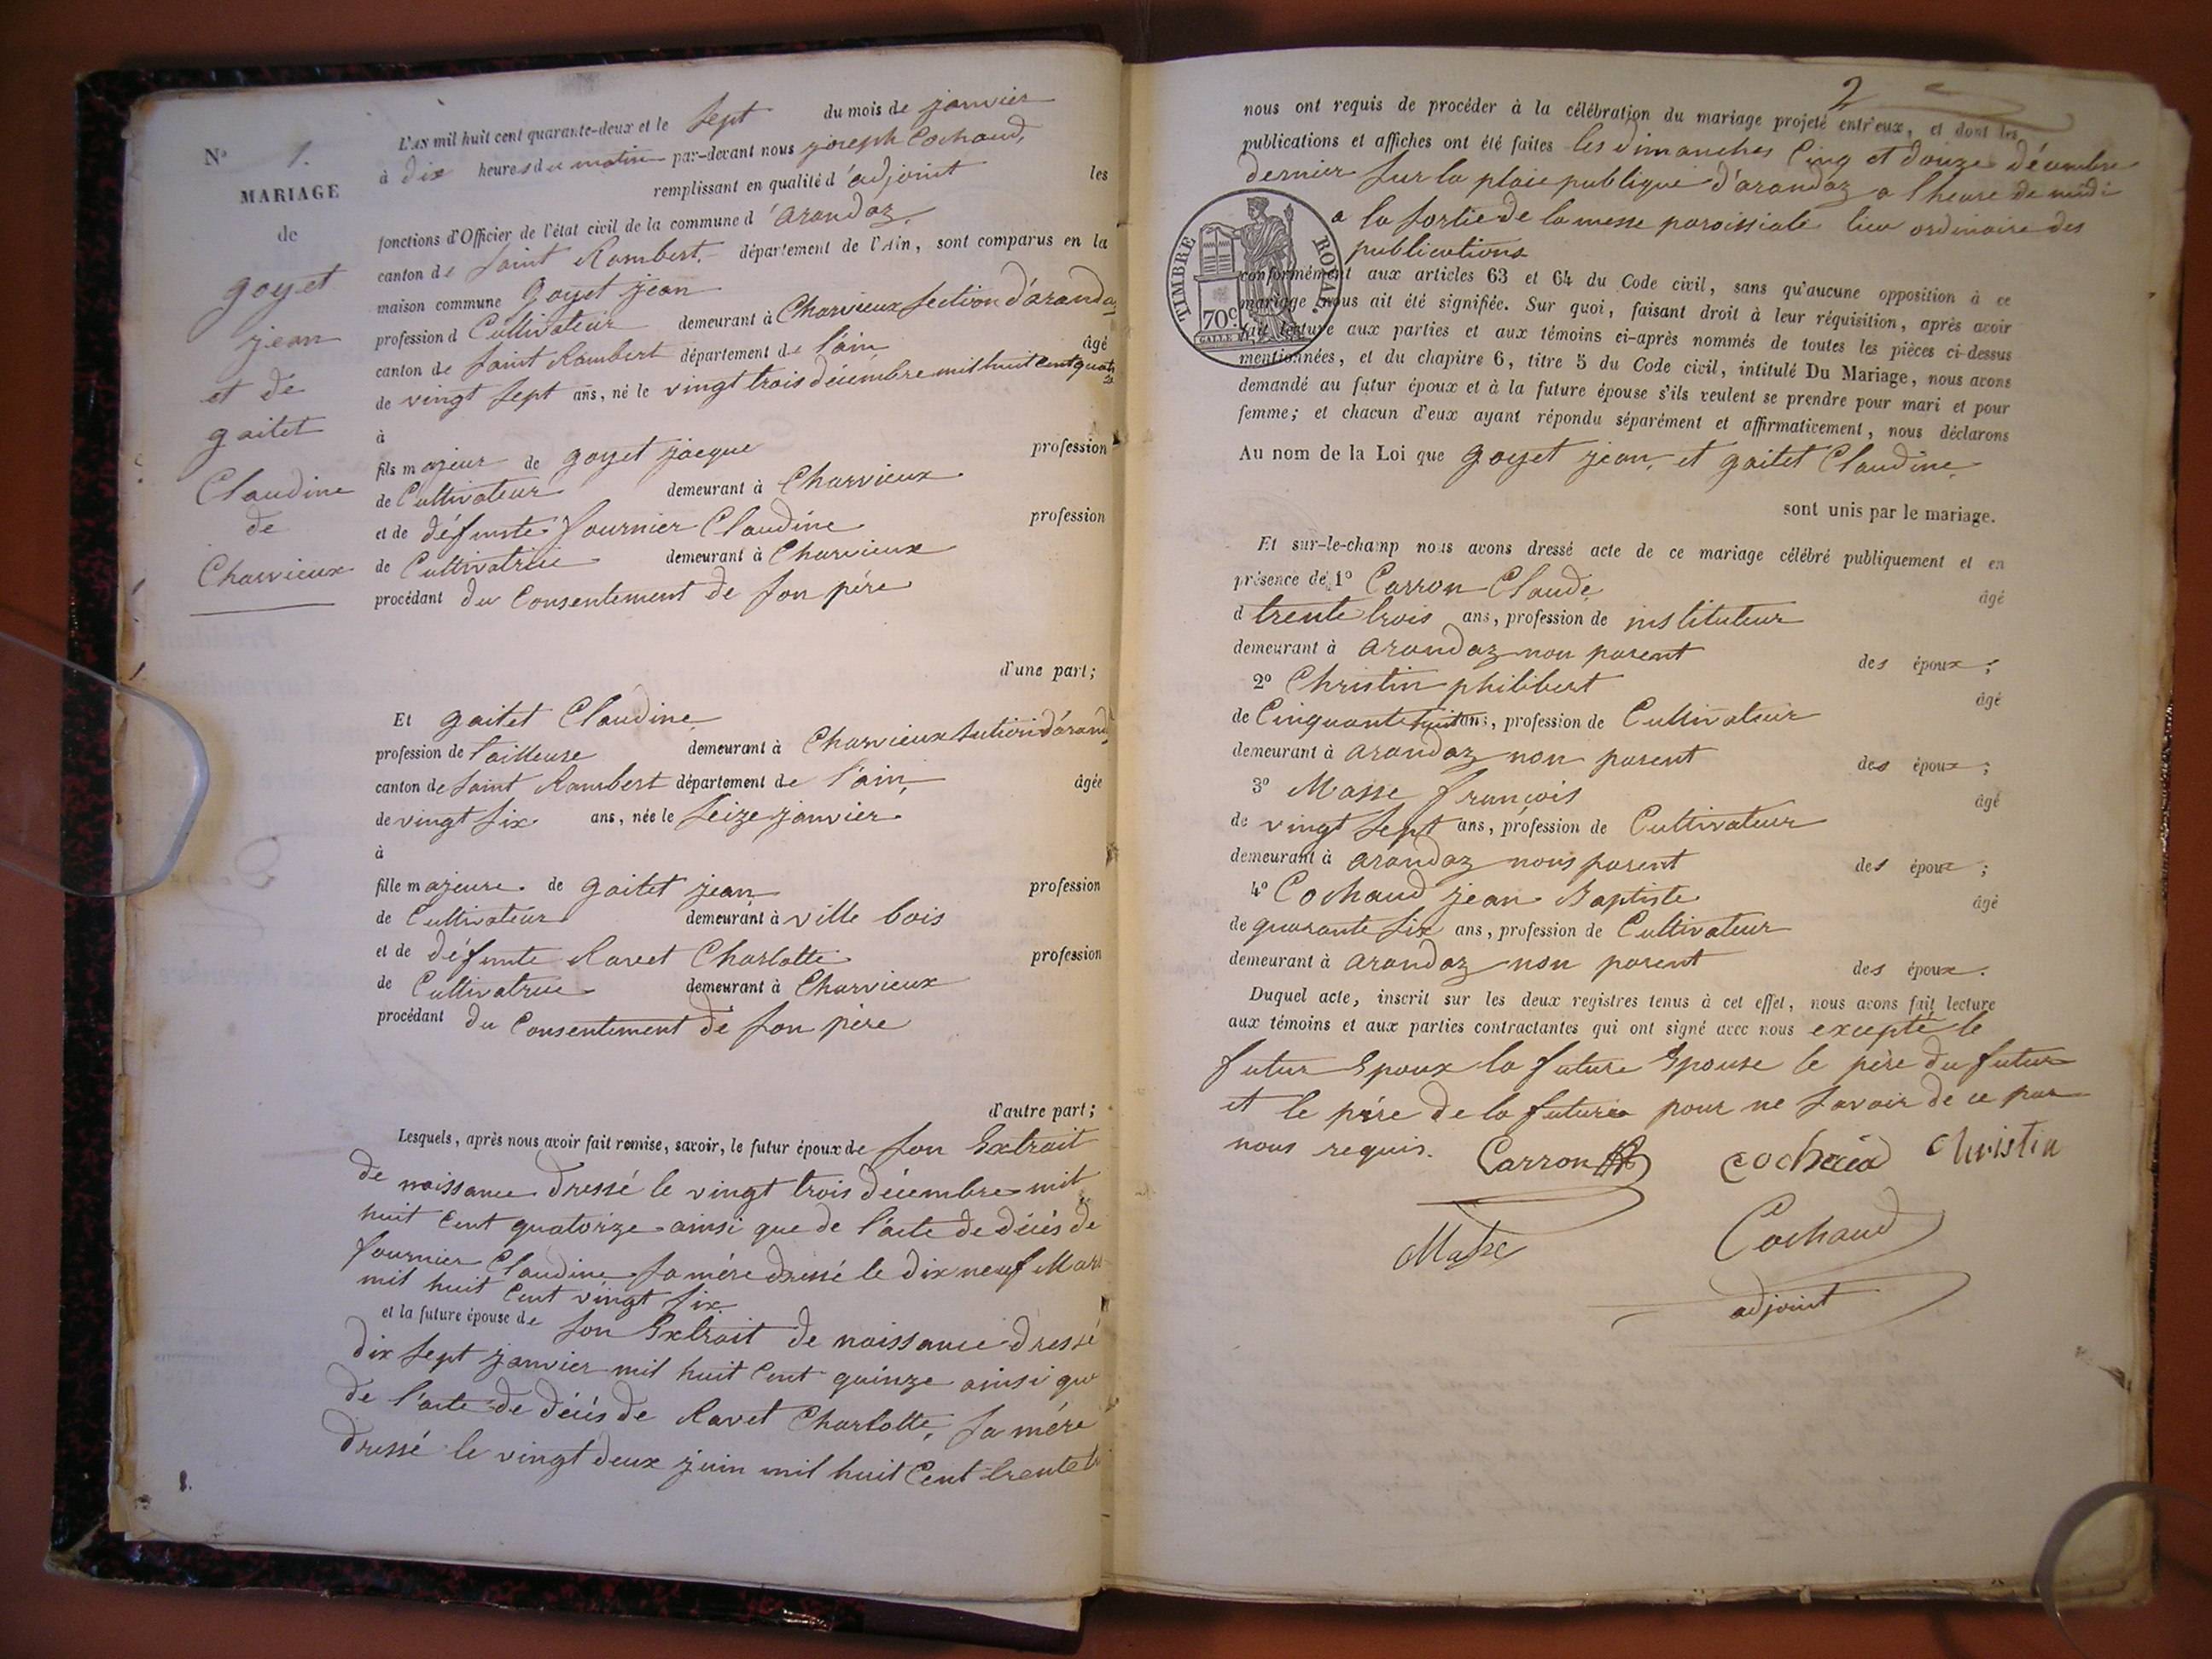 N° 1.
MARIAGE
de
goyet
jean
et de
gaitet
Claudine
de
Charvieux
L'AN mil huit cent quarante-deux et le sept du mois de janvier
à dix heures du matin par-devant nous joseph Cochaud,
remplissant en qualité d'adjoint les
fonctions d'Officier de l'état civil de la commune d'arandaz,
canton de saint Rambert, département de l'Ain, sont comparus en la
maison commune goyet jean
profession d Cultivateur demeurant à Charvieux section d'aranda
canton de saint Rambert département de l'ain âgé
de vingt sept ans, né le vingt trois décembre mil huit cent quato
à
fils majeur de goyet jacque profession
de Cultivateur demeurant à Charvieux
et de défunte fournier Claudine profession
de Cultivatrice demeurant à Charvieux
procédant du Consentement de son père
d'une part;
Et gaitet Claudine
profession de tailleuse demeurant à Charvieux section d'arand
canton de saint Rambert département de l'ain, âgée
de vingt six ans, née le seize janvier
à
fille majeure de gaitet jean profession
de Cultivateur demeurant à ville bois
et de défunte Ravet Charlotte profession
de Cultivatrice demeurant à Charvieux
procédant du Consentement de son père
d'autre part;
Lesquels, après nous avoir fait remise, savoir, le futur époux de son Extrait
de naissance dressé le vingt trois décembre mil
huit cent quatorze ainsi que de l'acte de décès de
fournier Claudine sa mére dressé le dix neuf Mars
mil huit Cent vingt six
et la future épouse de son Extrait de naissance dressé
dix sept janvier mil huit Cent quinze ainsi que
de l'acte de décès de Ravet Charlotte, sa mére
dressé le vingt deux juin mil huit Cent trente
2
nous ont requis de procéder à la célébration du mariage projeté entr'eux, et dont les
publications et affiches ont été faites les dimanches Cinq et douze décembre
dernier sur la place publique d'arandaz a l'heure de midi
a la sortie de la messe paroissiale lieu ordinaire des
publications
TIMBRE ROYAL.
70c
conformément aux articles 63 et 64 du Code civil, sans qu'aucune opposition à ce
mariage nous ait été signifiée. Sur quoi, faisant droit à leur réquisition, après avoir
fait lecture aux parties et aux témoins ci-après nommés de toutes les pièces ci-dessus
mentionnées, et du chapitre 6, titre 5 du Code civil, intitulé Du Mariage, nous avons
demandé au futur époux et à la future épouse s'ils veulent se prendre pour mari et pour
femme; et chacun d'eux ayant répondu séparément et affirmativement, nous déclarons
Au nom de la Loi que goyet jean, et gaitet Claudine
sont unis par le mariage.
Et sur-le-champ nous avons dressé acte de ce mariage célébré publiquement et en
présence de 1° Carron Claude âgé
d trente trois ans, profession de instituteur
demeurant à arandaz non parent des époux;
2° Christin philibert âgé
de Cinquante huit ans, profession de Cultivateur
demeurant à arandaz non parent des époux;
3° Masse françois âgé
de vingt sept ans, profession de Cultivateur
demeurant à arandaz nons parent des époux;
4° Cochaud jean Baptiste âgé
de quarante six ans, profession de Cultivateur
demeurant à arandaz non parent des époux.
Duquel acte, inscrit sur les deux registres tenus à cet effet, nous avons fait lecture
aux témoins et aux parties contractantes qui ont signé avec nous excepté le
futur Epoux la future Epouse le père du futur
et le père de la future pour ne savoir de ce par
nous requis. Carron cochaud christin
Masse Cochaud
adjoint